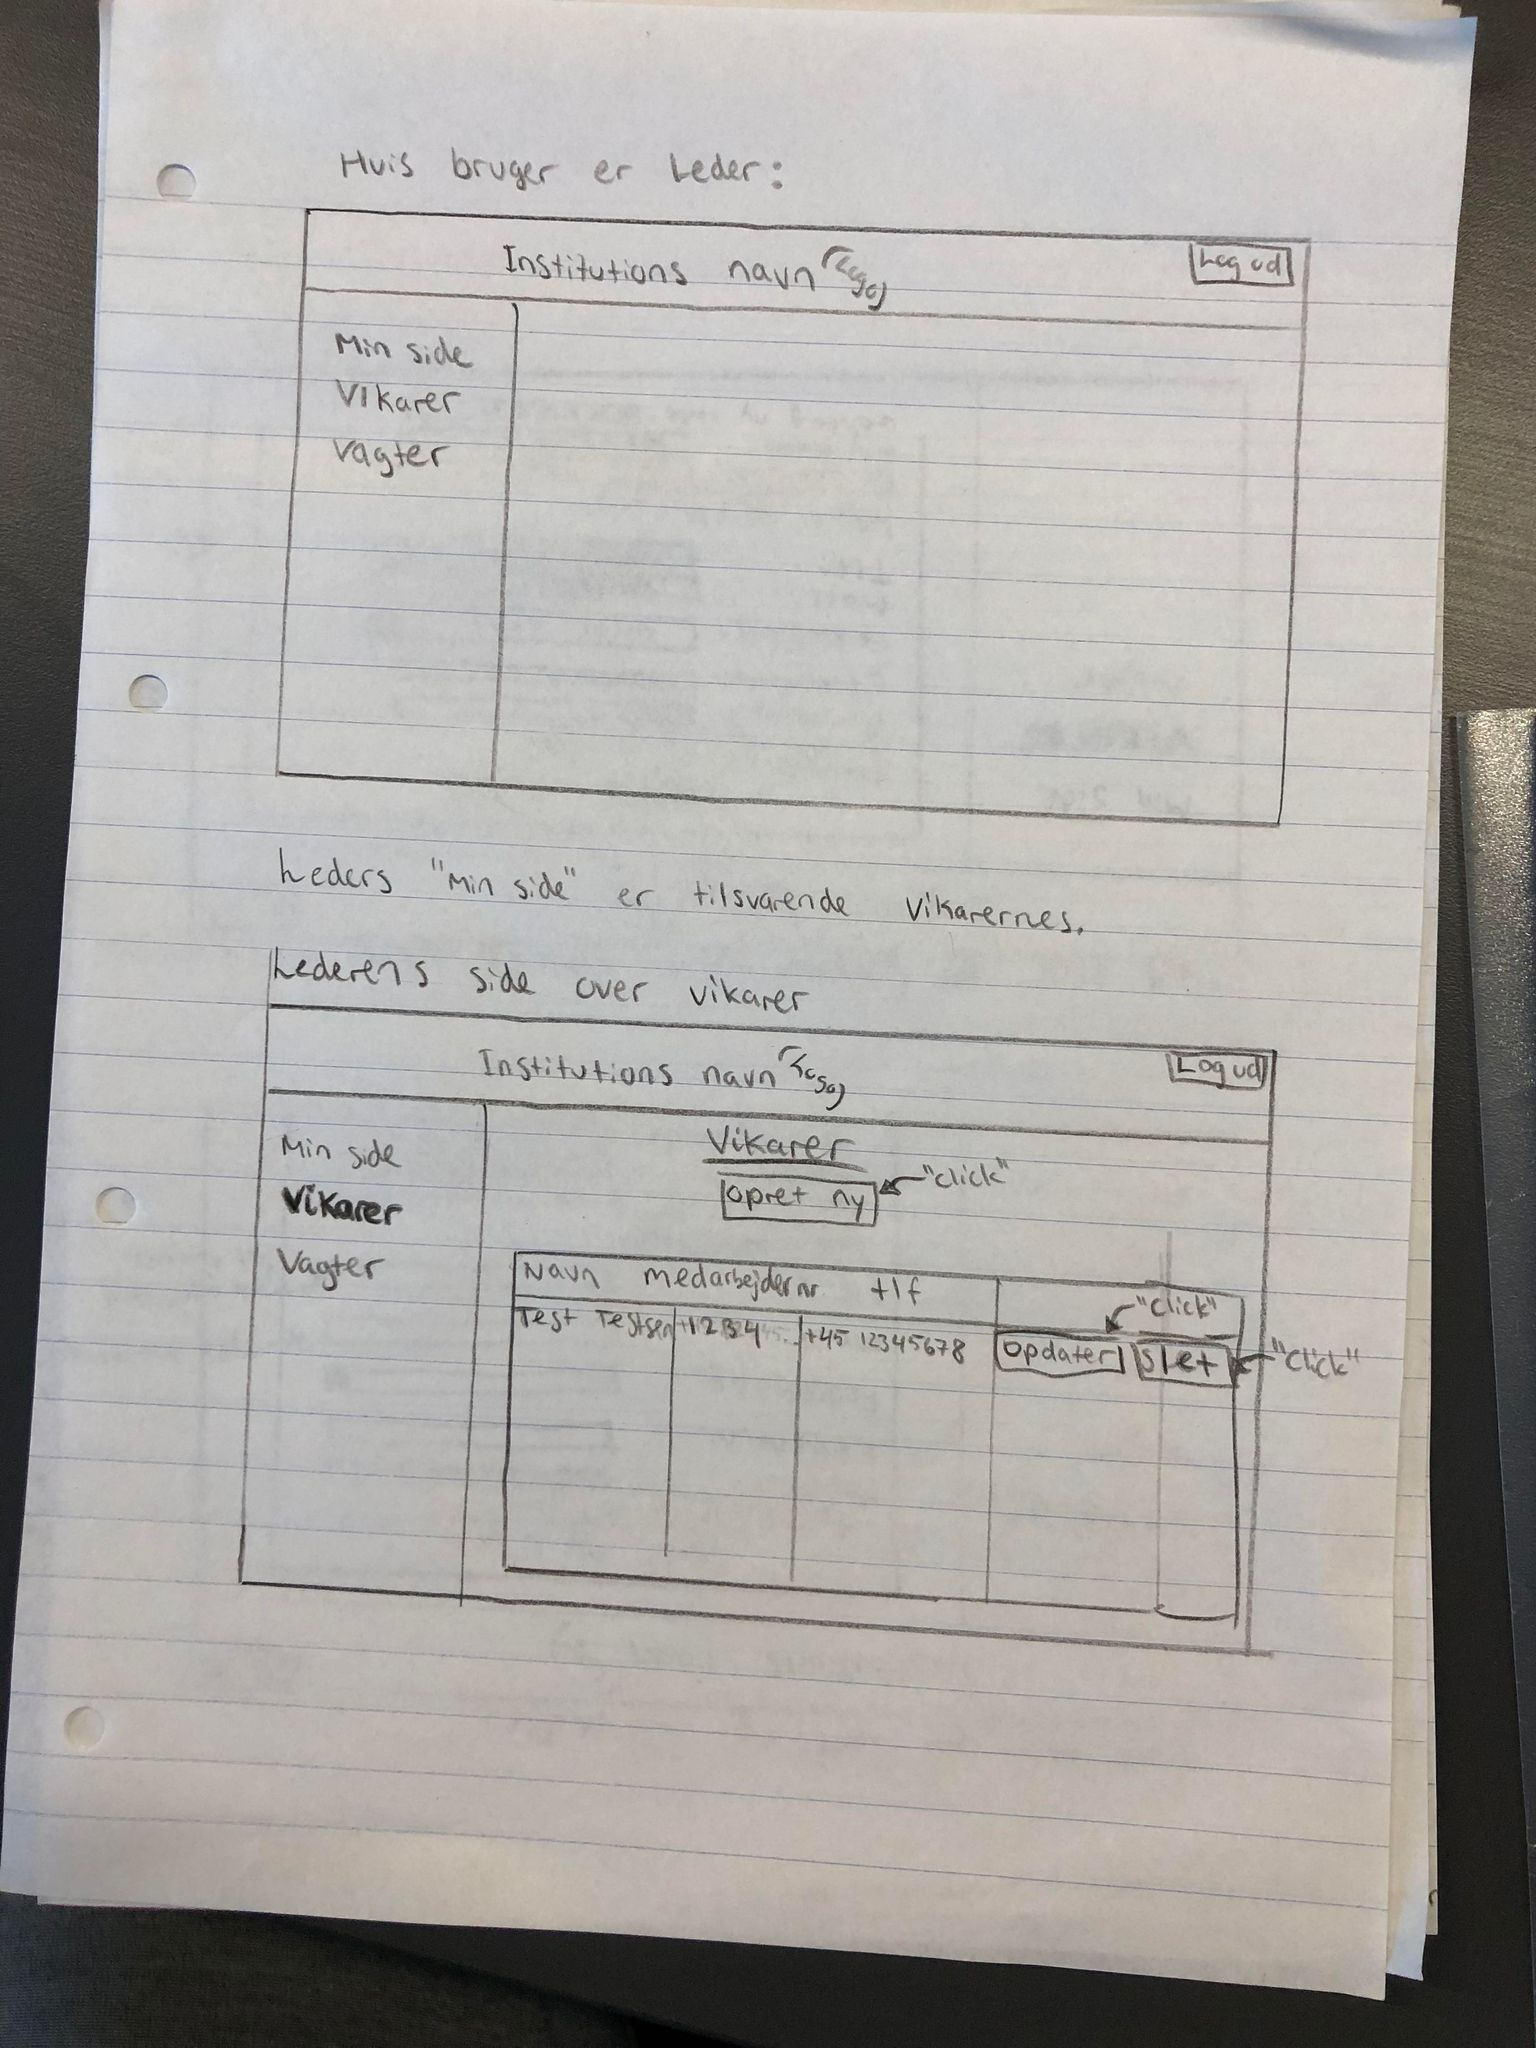 Hvis bruger er Leder:
Institutions navn (Logo)
Log ud
Min side
Vikarer
Vagter
Leders "Min side" er tilsvarende vikarernes.
Lederens side over vikarer
Institutions navn (Logo)
Log ud
Min side
Vikarer
Vagter
Vikarer
opret ny "click"
Navn medarbejdernr tlf
"click"
Test Testsen 1234 +45 12345678 opdater slet "click"